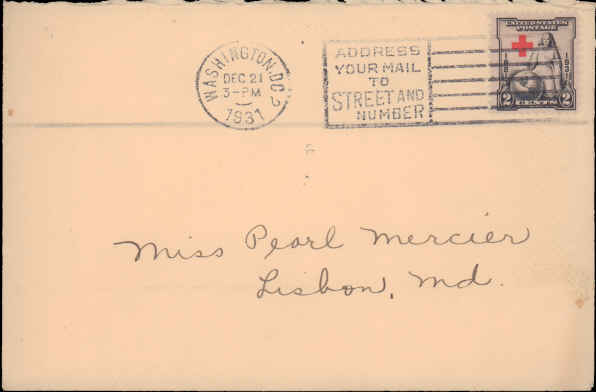 WASHINGTON, D.C. 2
DEC 21
3-PM
1931
ADDRESS
YOUR MAIL
TO
STREET AND
NUMBER
UNITED STATES
POSTAGE
1931
2 CENTS 2
Miss Pearl Mercier
Lisbon, Md.